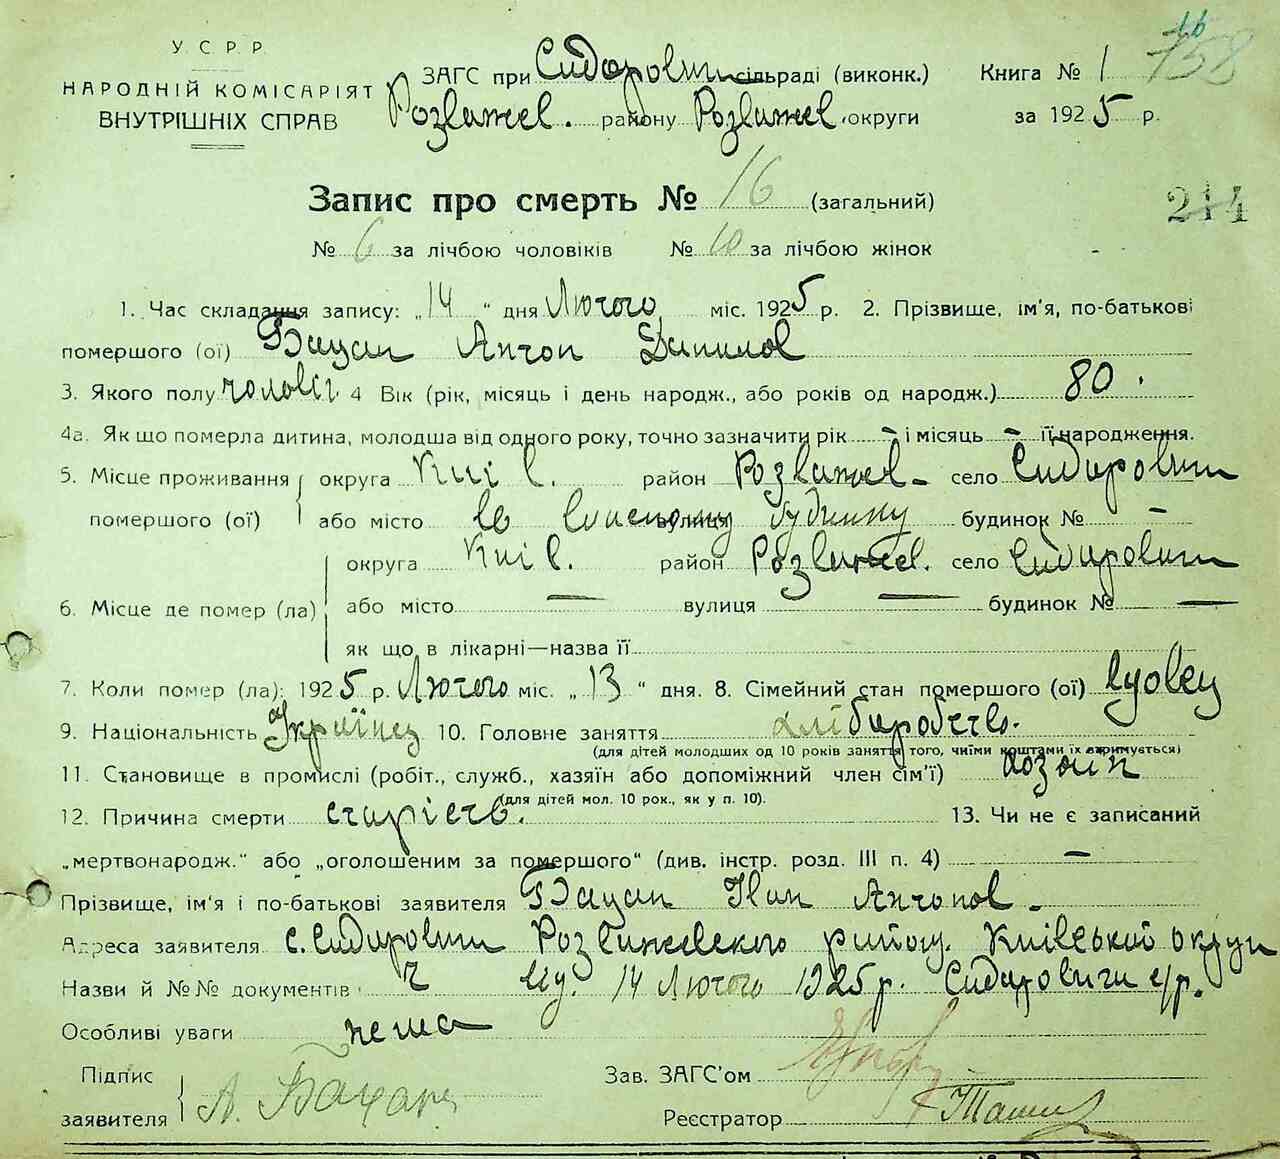 У. С. Р. Р.
НАРОДНІЙ КОМІСАРІЯТ
ВНУТРІШНІХ СПРАВ
ЗАГС при Сидорович сільраді (виконк.)
Розважев. району Розважев округи
Книга № 1
за 1925 р.
16
758
214
Запис про смерть № 16 (загальний)
№ 6 за лічбою чоловіків № 10 за лічбою жінок -
1. Час складання запису: „14 “ дня Лютого міс. 1925 р. 2. Прізвище, ім'я, по-батькові
помершого (ої) Бацан Антон Данилов
3. Якого полу чоловіч. 4 Вік (рік, місяць і день народж., або років од народж.) 80.
4а. Як що померла дитина, молодша від одного року, точно зазначити рік - і місяць - її народження.
5. Місце проживання помершого (ої) округа Київ. район Розважев- село Сидоровичи
або місто во власному вулиця будинку будинок № -
6. Місце де помер (ла) округа Київ. район Розважев. село Сидоровичи
або місто — вулиця — будинок № —
як що в лікарні—назва її
7. Коли помер (ла): 1925 р. Лютого міс. „ 13 “ дня. 8. Сімейний стан помершого (ої) вдовец
9. Національність Українец 10. Головне заняття хліборобство.
(для дітей молодших од 10 років заняття того, чиїми коштами їх утримується)
11. Становище в промислі (робіт., служб., хазяїн або допоміжний член сім'ї) хозяїн
(для дітей мол. 10 рок., як у п. 10).
12. Причина смерти старість. 13. Чи не є записаний
„мертвонародж.“ або „оголошеним за помершого“ (див. інстр. розд. III п. 4) -
Прізвище, ім'я і по-батькові заявителя Бацан Іван Антонов -
Адреса заявителя с. Сидоровичи Розважевского району. Київської округи
Назви й №№ документів 14 Лютого 1925 р. Сидоровичи с/р.
Особливі уваги нема
Підпис
заявителя А. Бацан
Зав. ЗАГС'ом
Реєстратор